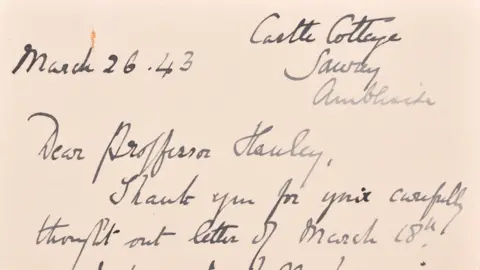 Castle Cottage
March 26.43 Sawrey
Ambleside
Dear Proffersor Hanley,
Thank you for your carefully
thought out letter of March 18th.